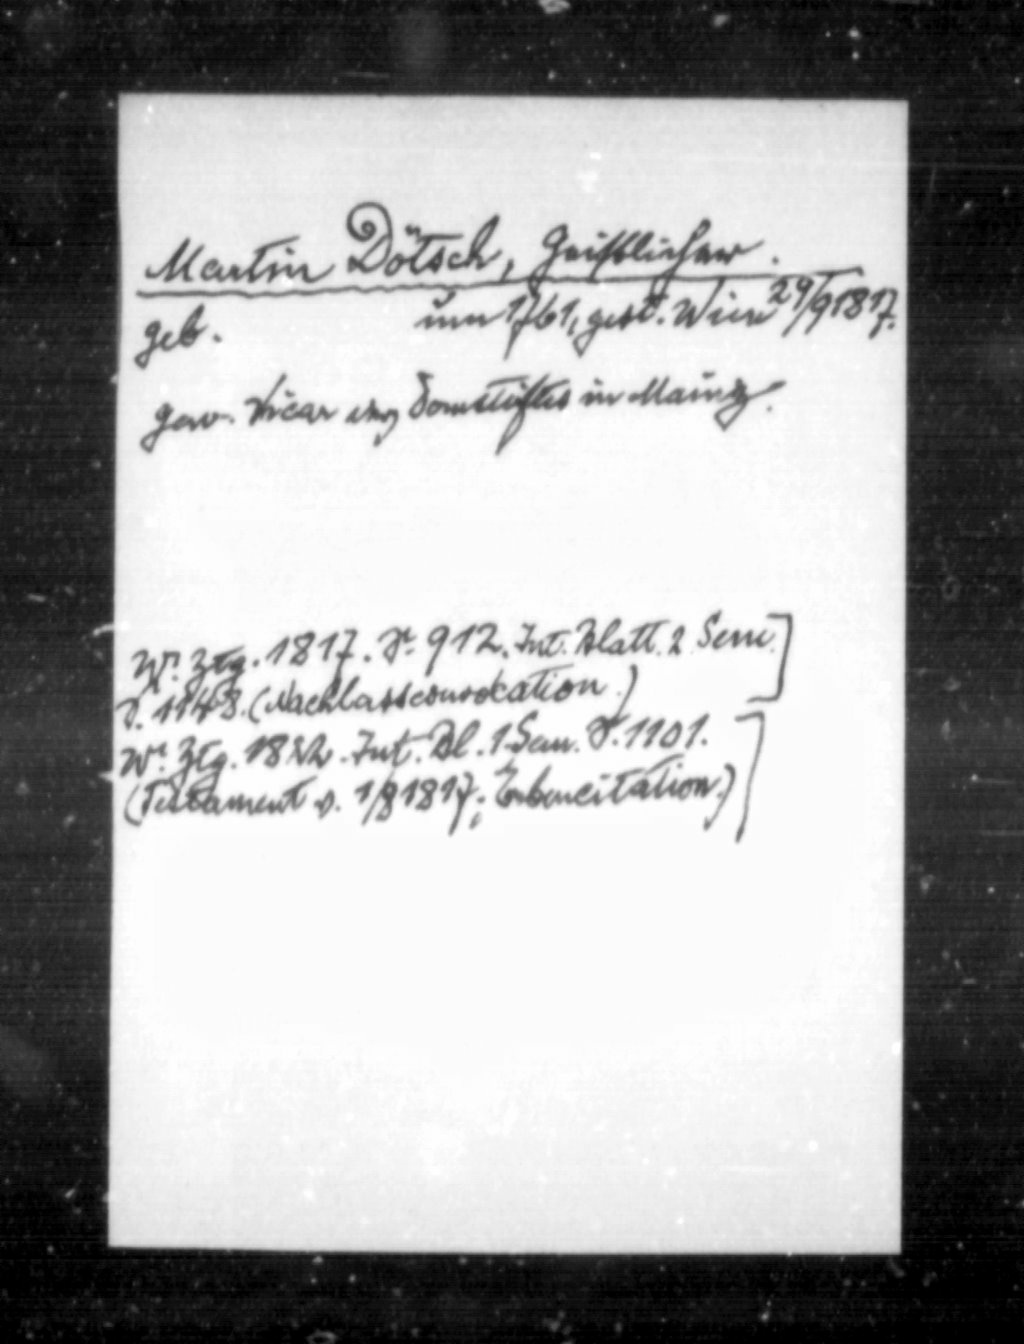 Martin Dötsch, Geistlicher.
geb. um 1761, gest. Wien 29/9 1817.
gew. Vicar des Domstiftes in Mainz.
Wr. Ztg. 1817. S. 912. Int. Blatt. 2 Sem.
S. 1148. (Nachlassconvocation.)]
Wr. Ztg. Int. Bl. 1 Sem. S. 1101.
(Testament v. 1/8 1817; Erbencitation.)]